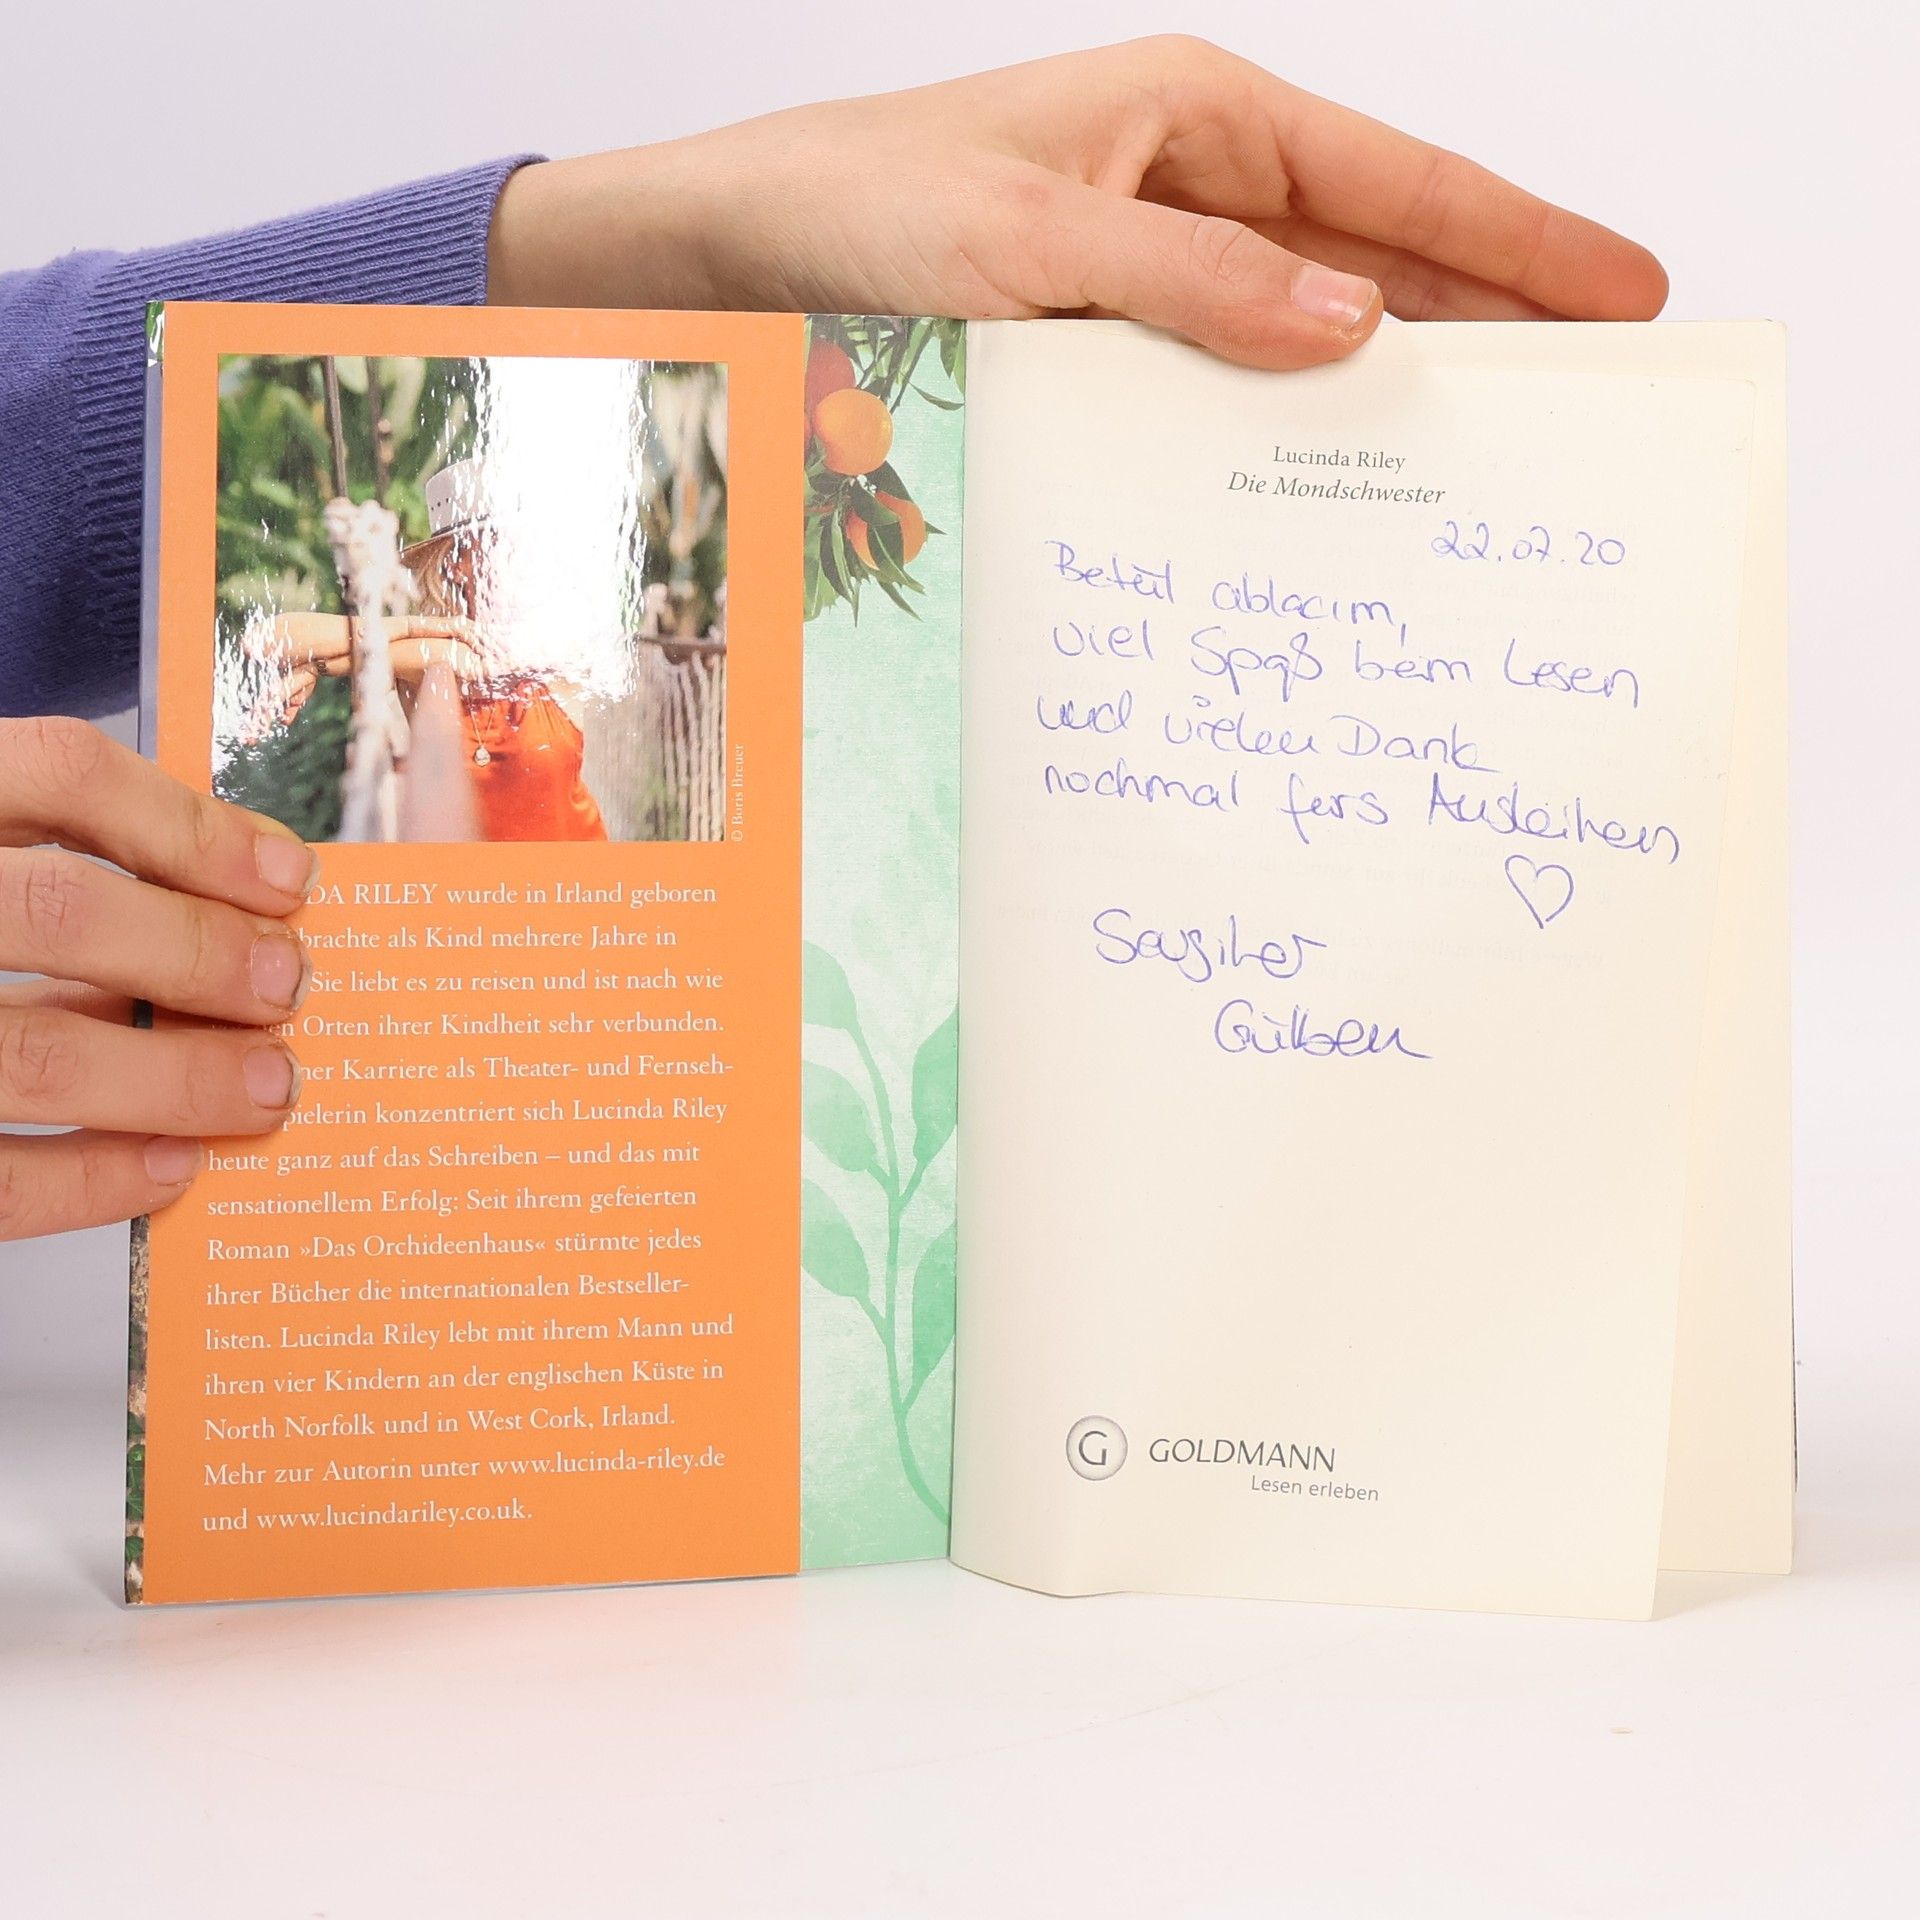 © Boris Breuer
DA RILEY wurde in Irland geboren
brachte als Kind mehrere Jahre in
Sie liebt es zu reisen und ist nach wie
en Orten ihrer Kindheit sehr verbunden.
ner Karriere als Theater- und Fernseh-
pielerin konzentriert sich Lucinda Riley
heute ganz auf das Schreiben – und das mit
sensationellem Erfolg: Seit ihrem gefeierten
Roman »Das Orchideenhaus« stürmte jedes
ihrer Bücher die internationalen Bestseller-
listen. Lucinda Riley lebt mit ihrem Mann und
ihren vier Kindern an der englischen Küste in
North Norfolk und in West Cork, Irland.
Mehr zur Autorin unter www.lucinda-riley.de
und www.lucindariley.co.uk.
Lucinda Riley
Die Mondschwester
22.07.20
ablacım,
viel Spaß beim Lesen
und vielen Dank
nochmal fürs Ausleihen
♡
Sevgiler
Gülben
G GOLDMANN
Lesen erleben